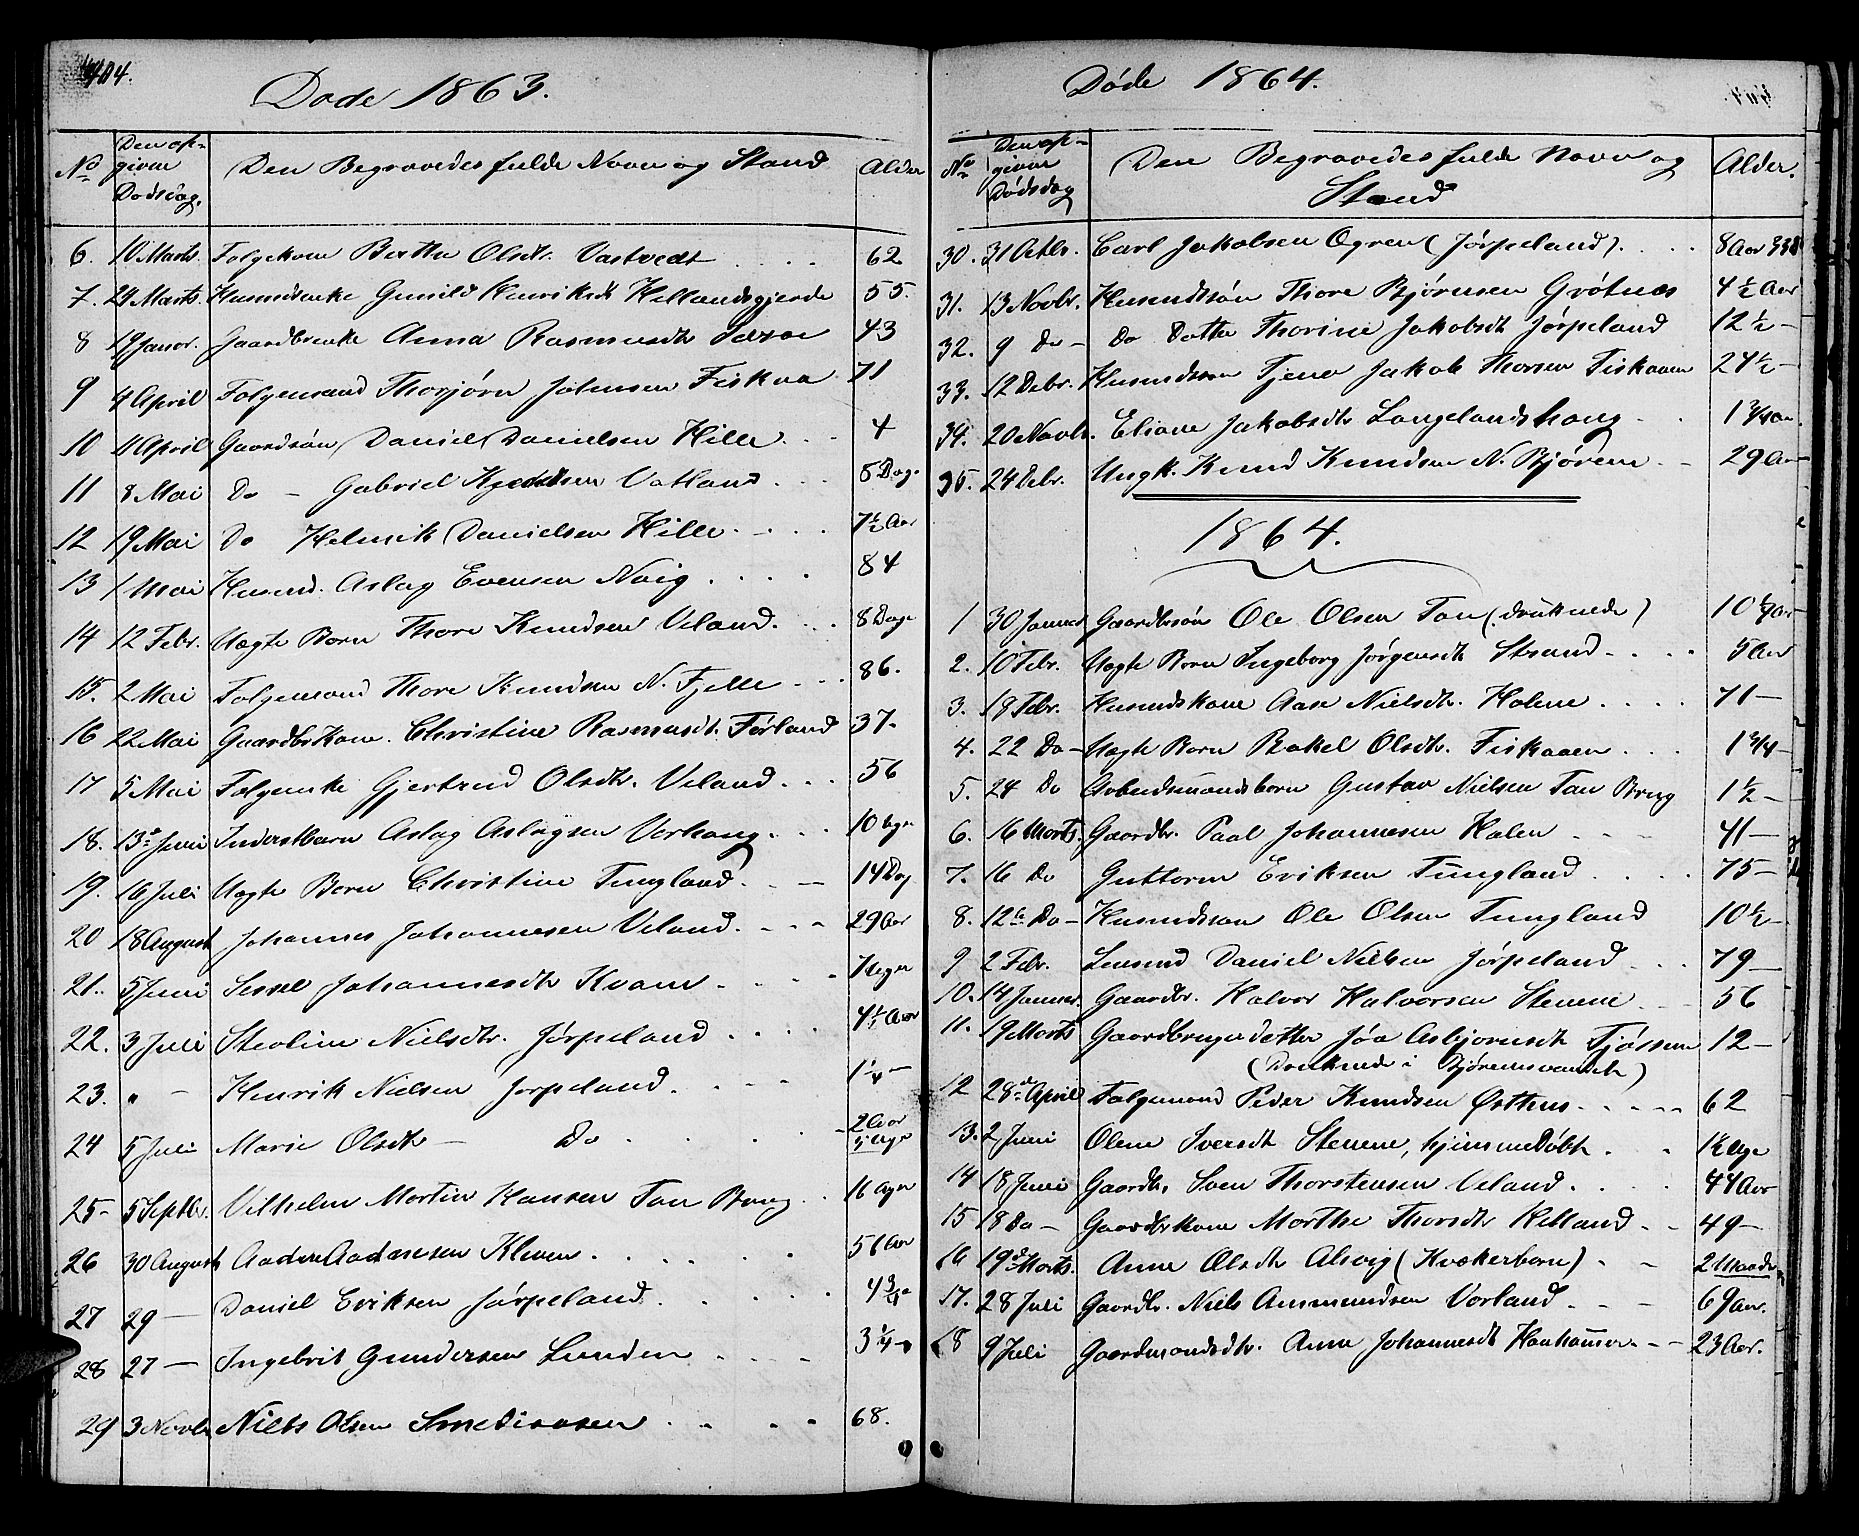 404.
Døde 1863.
No
Den op-
given
Dødsdag.
Den Begravedes fulde Navn og Stand
Alder
6. 10 Marts. Folgekone Berthe Olsdtr. Vastvedt 62
7. 24 Marts. Husmdsenke Gunild Henriksdt Hellandsgjerde 55.
8 19 Januar. Gaardbrenke Anna Rasmusdtr 43
9 4 April Folgemand Thorjørn Johnsen Fiskaa 71
10 11 April Gaardsøn Daniel Danielsen Hille 4
11 8 Mai Do - Gabriel Vatland 8 Dage
12 19 Mai Do Helmik Danielsen Hille 7½ Aar
13 1 Mai Husmd. Aslag Evensen Nøig 84
14 12 Febr. Uægte Barn Thore Knudsen Veland. 8 Dage
15. 2 Mai Folgemand Thore Knudsen N. Fjelle 86.
16 22 Mai Gaardbrkone. Christine Rasmusdt. Førland 37.
17 5 Mai Folgenke Gjertrud Olsdtr. Veland. 56
18. 13de Juni Inderstbarn Aslag Aslagsen Vorhaug. 10 Uger
19. 16 Juli Uægte Barn Christine Tungland. 14 Dag
20 18 August Johannes Johannesen Veland. 29 Aar
21. 5 Juni Sissel Johannesdtr Kvam. 7 Uger
22. 3 Juli Steoline Nielsdtr. Jørpeland 4½ Aar
23. " - Henrik Nielsen Jørpeland. 1¼ -
24 5 Juli Marie Olsdtr - Do 2 Aar
25- 5 Septbr. Vilhelm Martin Hansen Tau Brug 16 Uger
26 30 August Aadne Aadnesen Kleven. 56 Aar
27 29 - Daniel Eriksen Jørpeland. 4¾
28 27 - Ingebrit Gundersen Lunden 3¼
29 3 Novbr Niels Olsen 68.
Døde 1864.
No
Den op-
given
Dødsdag
Den Begravedes fulde Navn og
Stand
Alder.
30. 31 Octbr. Carl Jakobsen Ogren (Jørpeland). 8 Aar
31. 13 Novbr. Husmdsøn Thore Bjørnsen Grøtnes 4½ Aar
32. 9 Do - Do Datter Thorine Jakobsdt Jørpeland 12½ -
33. 12 Debr. Husmdssøn Tjena Jakob Thorsen Fiskaaen 24½ -
34. 20 Novbr. Eliane Jakobsdtr Langelandshaug 1¾ Aar.
35. 24 Debr. Ungk. Knud Knudsen N. Bjøreim 29 Aar
1864.
1 30 Januar Gaardbrsøn Ole Olsen Tau (druknede) 10½ Aar
2. 10 Febr. Uægte Barn Ingeborg Jørgensdt Strand 5 Aar
3. 18 Febr. Husmdskone Aase Nielsdt. Holene 71 -
4. 22 Do - Uægte Barn Rakel Olsdtr. Fiskaaen 1¾ -
5. 24 Do Arbeidsmandsbarn Gustav Nielsen Tau Brug 1½ -
6. 16 Marts. Gaardbr. Paal Johannesen Halen 41 -
7. 16 Do Guttorm Eriksen Tungland 75 -
8. 12te Do - Husmdssøn Ole Olsen Tungland 10½ -
9 2 Febr. Daniel Nielsen Jørpeland 79 -
10. 14 Januar. Gaardbr. Halvor Halvorsen Stevene 56
11. 19 Marts Gaardbrugerdatter Jøa Asbjørnsdt Tjøssem 12 -
(Druknede i Bjøreimsvandet)
12 28de April Folgemand Peder Knudsen Østhus 62
13. 2 Juni Olene Iversdt Stevene, hjemmedøbt 1½ Uge
14 18 Juni Gaardbr. Sven Thorstensen Veland. 44 Aar
15 18 Do - Gaardbrkone Marthe Thorsdtr Helland 49 -
16 19de Marts. Anne Olsdtr Alsvig (Kvækerbarn) 2 Maaneder
17. 28 Juli Gaardbr. Niels Ammundsen Vorland. 69 Aar.
18 9 Juli Gaardmandsdtr. Anne Johannesdt 23 Aar.